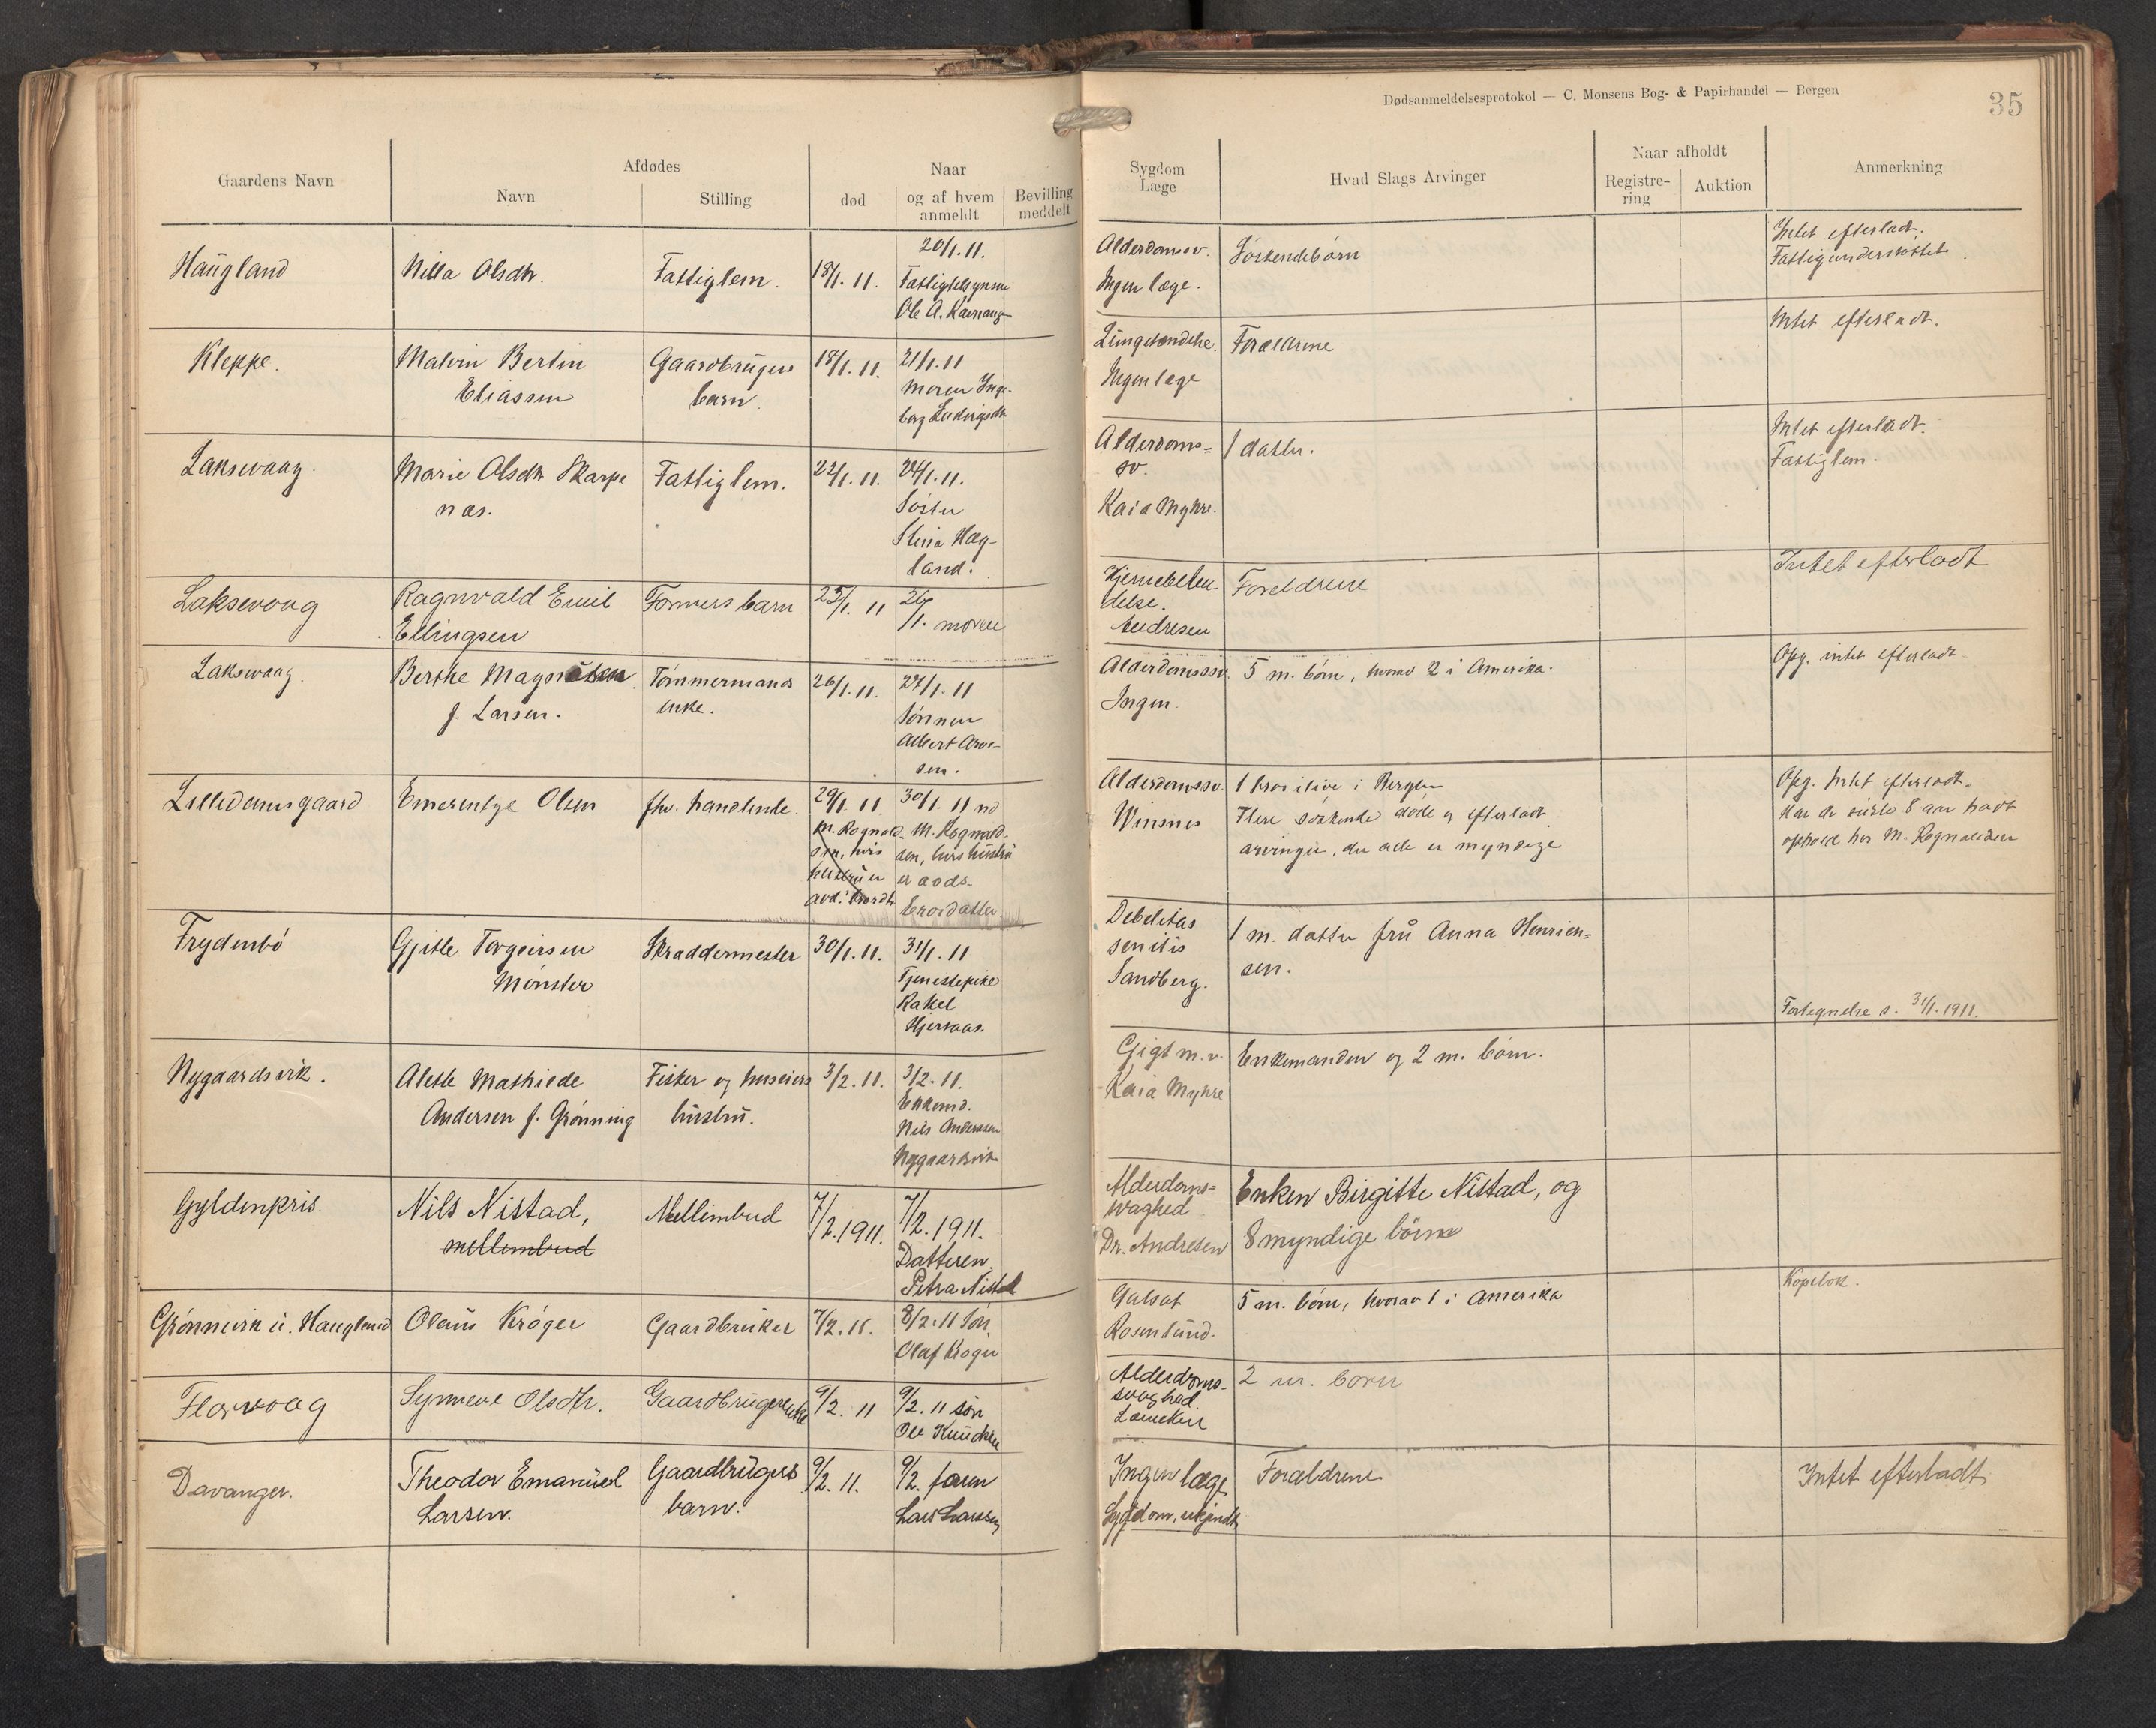 Dødsanmeldelsesprotokol — C. Monsens Bog- & Papirhandel — Bergen
35
Gaardens Navn
Afdødes
Navn
Stilling
Naar
død
og af hvem anmeldt
Bevilling meddelt
Sygdom Læge
Hvad Slags Arvinger
Naar afholdt
Registre-ring
Auktion
Anmerkning
Haugland
Nilla Olsdtr.
Fattiglem.
18/1. 11.
20/1. 11.
Fattigtilsynsm
Ole A.
Alderdomssv.
Ingen læge.
Søskendebørn
Intet efterladt.
Fattigunderstøttet.
Kleppe.
Malvin Bertin
Eliassen
Gaardbrugers
barn.
18/1. 11.
21/1. 11
Moren Inge-
borg Ludvigsdtr
Lungebetændelse.
Ingen læge
Forældrene
Intet efterladt.
Laksevaag.
Marie Olsdtr Skarpe
næs.
Fattiglem.
22/1. 11.
24/1. 11.
Søster
Stina Hæg-
land.
Alderdoms=
sv.
Kaia Myhre.
1 datter.
Intet efterladt.
Fattiglem.
Laksevaag
Ragnvald Emil
Ellingsen
Formers barn
25/1. 11
26/1. moren
Hjernebeten-
delse.
Andresen
Foreldrene
Intet efterladt
Laksevaag.
Berthe Magnussen
f. Larsen.
Tømmermands
enke.
26/1. 11.
27/1. 11
Sønnen
Albert Arne-
sen.
Alderdomssv.
Ingen.
5 m. børn, hvorav 2 i Amerika.
Opg. intet efterladt
Lilledamsgaard
Emerentze Olsen
fhv. handlende.
29/1. 11
M. Rognald-
sen, hvis
hustru er
avd.
30/1. 11
M. Rognald-
sen, hvis hustru
er avds.
brordatter.
Alderdomssv.
Winsnes
1 bror ilive i Bergen
Flere søskende døde og efterladt
arvinger, der alle er myndige
Opg. Intet efterladt.
Har de sidste 8 aar havt
ophold hos M. Rognaldsen
Frydenbø
Gjitle Torgeirsen
Mønster
Skræddermester
30/1. 11.
31/1. 11
Tjenestepike
Rakel
Hjersaas.
Debelitas
senilis
Sandberg.
1 m. datter fru Anna Henrien=
sen.
Fortegnelse s. 31/1. 1911.
Nygaardsvik.
Alette Mathilde
Andersen f. Grønning
Fisker og huseiers
hustru.
3/2. 11.
3/2. 11.
Enkemd.
Nils Anderssen
Nygaardsvik
Gigt m. v.
Kaia Myhre
Enkemanden og 2 m. børn.
Gyldenpris.
Nils Nistad,
mellembud
Mellembud
7/2. 1911.
7/2. 1911.
Datteren
Petra Nistad
Alderdoms=
svaghed
Dr. Andresen
Enken Birgitte Nistad, og
8 myndige børn
Grønnevik u. Haugland
Olaus Krøger
Gaardbruker
7/2. 11.
8/2. 11 Søn
Olaf Krøger
Gulsot
Rosenlund.
5 m. børn, hvorav 1 i Amerika
Florvaag
Synneve Olsdtr.
Gaardbrugerenke
9/2. 11
9/2. 11 søn
Ole Knudsen
Alderdoms-
svaghed.
2 m. børn
Davanger.
Theodor Emanuel
Larsen.
Gaardbrugers
barn.
9/2. 11.
9/2. faren
Lars Larssen
Ingen læge
Sygdom, ukjendt
Forældrene
Intet efterladt